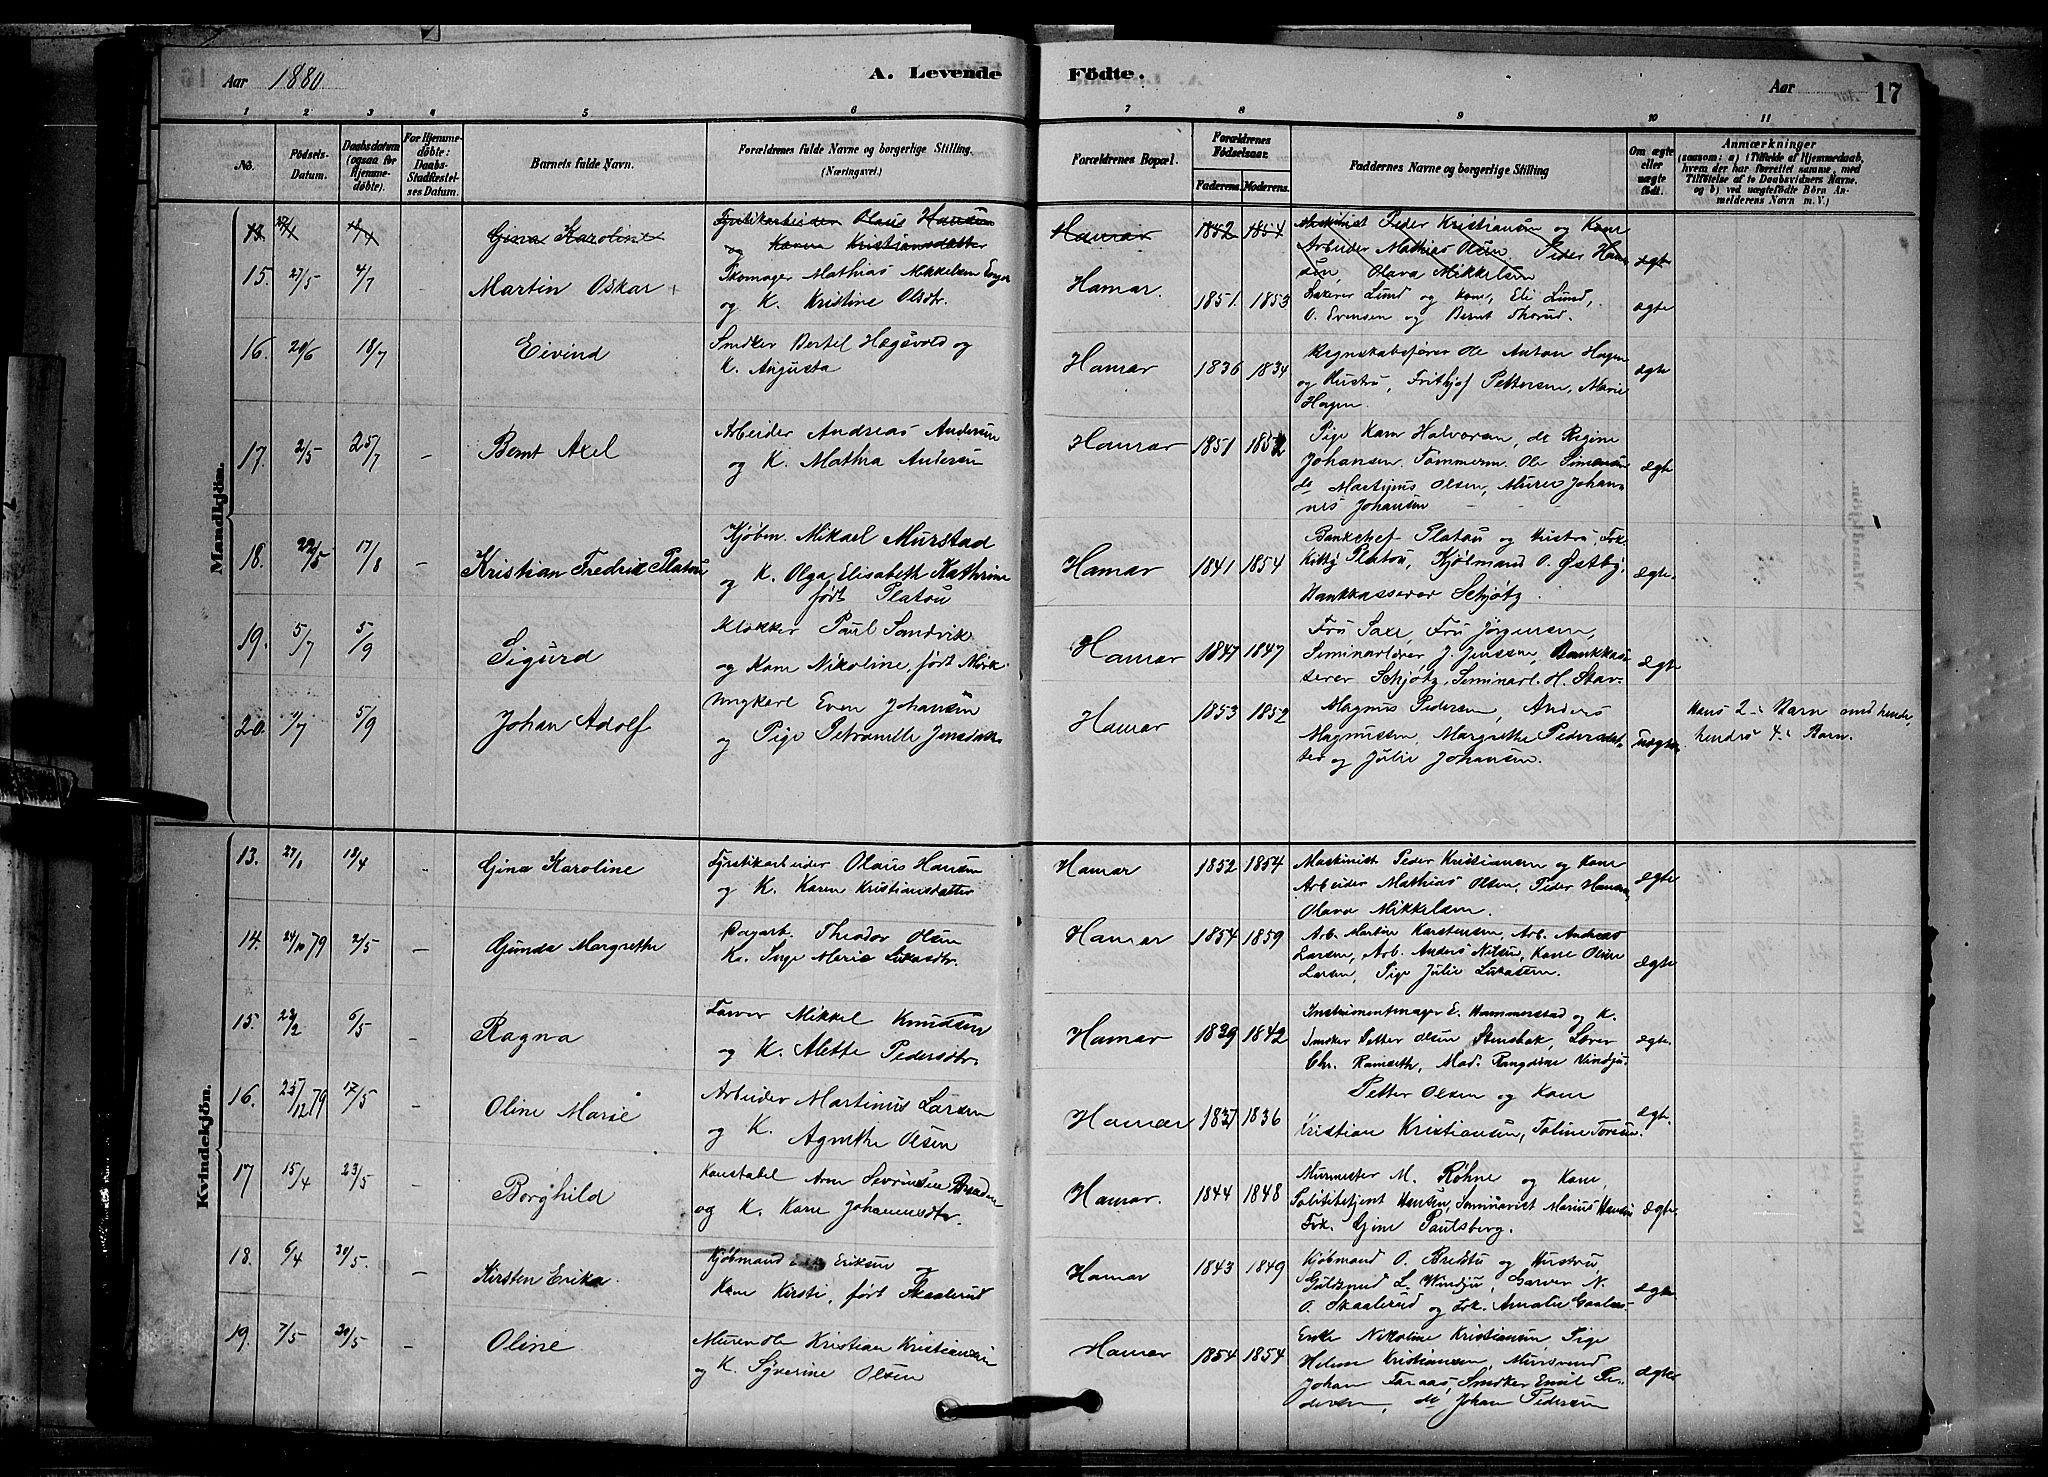 Aar 1880
A. Levende
Födte.
Aar
17
1 2 3 4 5 6 7 8 9 10 11
No.
Födsels-
Datum.
Daabsdatum
(ogsaa for
Hjemme-
døbte).
For Hjemme-
døbte:
Daabs-
Stadfæstel-
ses Datum.
Barnets fulde Navn.
Forældrenes fulde Navne og borgerlige Stilling.
(Næringsvei.)
Forældrenes Bopæl.
Forældrenes
Födselsaar.
Faderens. Moderens.
Faddernes Navne og borgerlige Stilling
Om ægte
eller
uægte
født.
Anmærkninger
(saasom: a) i Tilfælde af Hjemmedaab,
hvem der har forrettet samme, med
Tilføielse af to Daabsvidners Navne,
og b) ved uægtefødte Börn An-
melderens Navn m. V.)
Mandkjön.
Gina Karoline
Fyrstikarbeider Olaus Hansen
og Karen Kristiansdatter
Hamar 1852 1854
Maskinist Peder Kristiansen og Kone
Arbeider Mathias Olsen, Peder Han-
sen, Olava Mikkelsen
ægte
15. 27/5 4/7
Martin Oskar
Skomager Mathias Mikkelsen
og K. Kristine Olsdtr.
Hamar. 1851. 1853
Lund og Kone, Eli Lund,
O. Svensen og Bernt Thorud.
ægte
16. 20/6 18/7
Eivind
Snedker Bertel Hegsvold og
K. Augusta
Hamar 1836 1834
Regnskabsfører Ole Anton Hagen
og Hustru, Frithjof Pettersen, Marie
Hagen.
ægte
17. 2/5 25/7 -
Bernt Axel
Arbeider Andreas Andersen
og K. Mathia Andersen
Hamar 1851 1852
Pige Karn Halvorsen, do Regine
Johansen. Tømmerm. Ole Simensen
do Martinus Olsen, Murer Johan-
nes Johansen
ægte
18. 22/5 17/8 -
Kristian Fredrik Platou
Kjøbm. Mikael Murstad
og K. Olga Elisabeth Kathrine
født Platou
Hamar 1841 1854
Bankchef Platou og Hustru, Frk
Kitty Platou, Kjøbmand O. Østby,
Bankkasserer Schjøtz
ægte.
19. 5/7 5/9
Sigurd
Klokker Paul Sandvik
og Kone Nikoline, født Mørk.
Hamar 1847 1847
Fru Saxe, Fru Jørgensen,
Seminarlærer J. Jenssen, Bankkas-
serer Schjøtz, Seminarl. H. Stav-
ægte
20. 5/9
Johan Adolf
Ungkarl Even Johansen
og Pige Petronelle Jensdatter
Hamar 1853 1852
Magnus Pedersen, Anders
Magnussen, Margrethe Pedersdat-
ter og Julie Johansen.
uægte
Hans 2. Barn med hende,
hendes 4. Barn.
Kvindekjön.
13. 27/1 18/4 -
Gina Karoline
Fyrstikarbeider Olaus Hansen
og K. Karen Kristiansdatter
Hamar 1852 1854
Maskinist Peder Kristiansen og Kone
Arbeider Mathias Olsen, Peder Hansen,
Olava Mikkelsen.
ægte
14. 24/10 79 2/5 -
Gunda Margrethe
Dagarb. Theodor Olsen
K. Inge Marie Lukasdtr.
Hamar 1854 1859
Arb. Martin Karstensen, Arb. Andreas
Larsen, Arb. Anders Nilsen, Kone Oline
Larsen, Pige Julie Lukassen.
ægte
15. 23/2 6/5 -
Ragna
Farver Mikkel Knudsen
og K. Alette Pedersdtr.
Hamar 1839 1842
Instrumentmager E. Hammerstad og K.
Snedker Petter Olsen Stensbak, Lærer
Chr. Ramseth, Mad. Rangdine Vindju.
ægte.
16. 25/12 79 17/5 -
Oline Marie
Arbeider Martinus Larsen
og K. Agnethe Olsen
Hamar 1837 1836
Petter Olsen og Kone
Kristian Kristiansen, Toline Toresen.
ægte.
17 15/4 23/5 -
Borghild
Konstabel Arne Severinsen Braaden
og K. Karn Johannesdtr.
Hamar. 1844 1848
Murmester M. Røhne og Kone,
Politibetjent Hansen, Seminarist Marius Hansen
Frk. Gine Paulsberg.
ægte
18. 6/4 30/5. -
Kirsten Erika.
Kjøbmand Eriksen og
Kone Kirsti, født Skaalerud
Hamar 1843 1849
Kjøbmand O. Bredstu og Hustru,
Guldsmed L. Windju, Garver N.
O. Skaalerud og Frk. Amalie Gaalaas
ægte
19. 7/5 30/5 -
Oline
Murer Ole Kristian Kristiansen
og K. Syverine Olsen
Hamar 1854 1854
Enke Nikoline Kristiansen, Pige
Helene Kristiansen, Mursvend
Johan Faraas, Snedker Emil Pe-
dersen, do Johan Pedersen
ægte